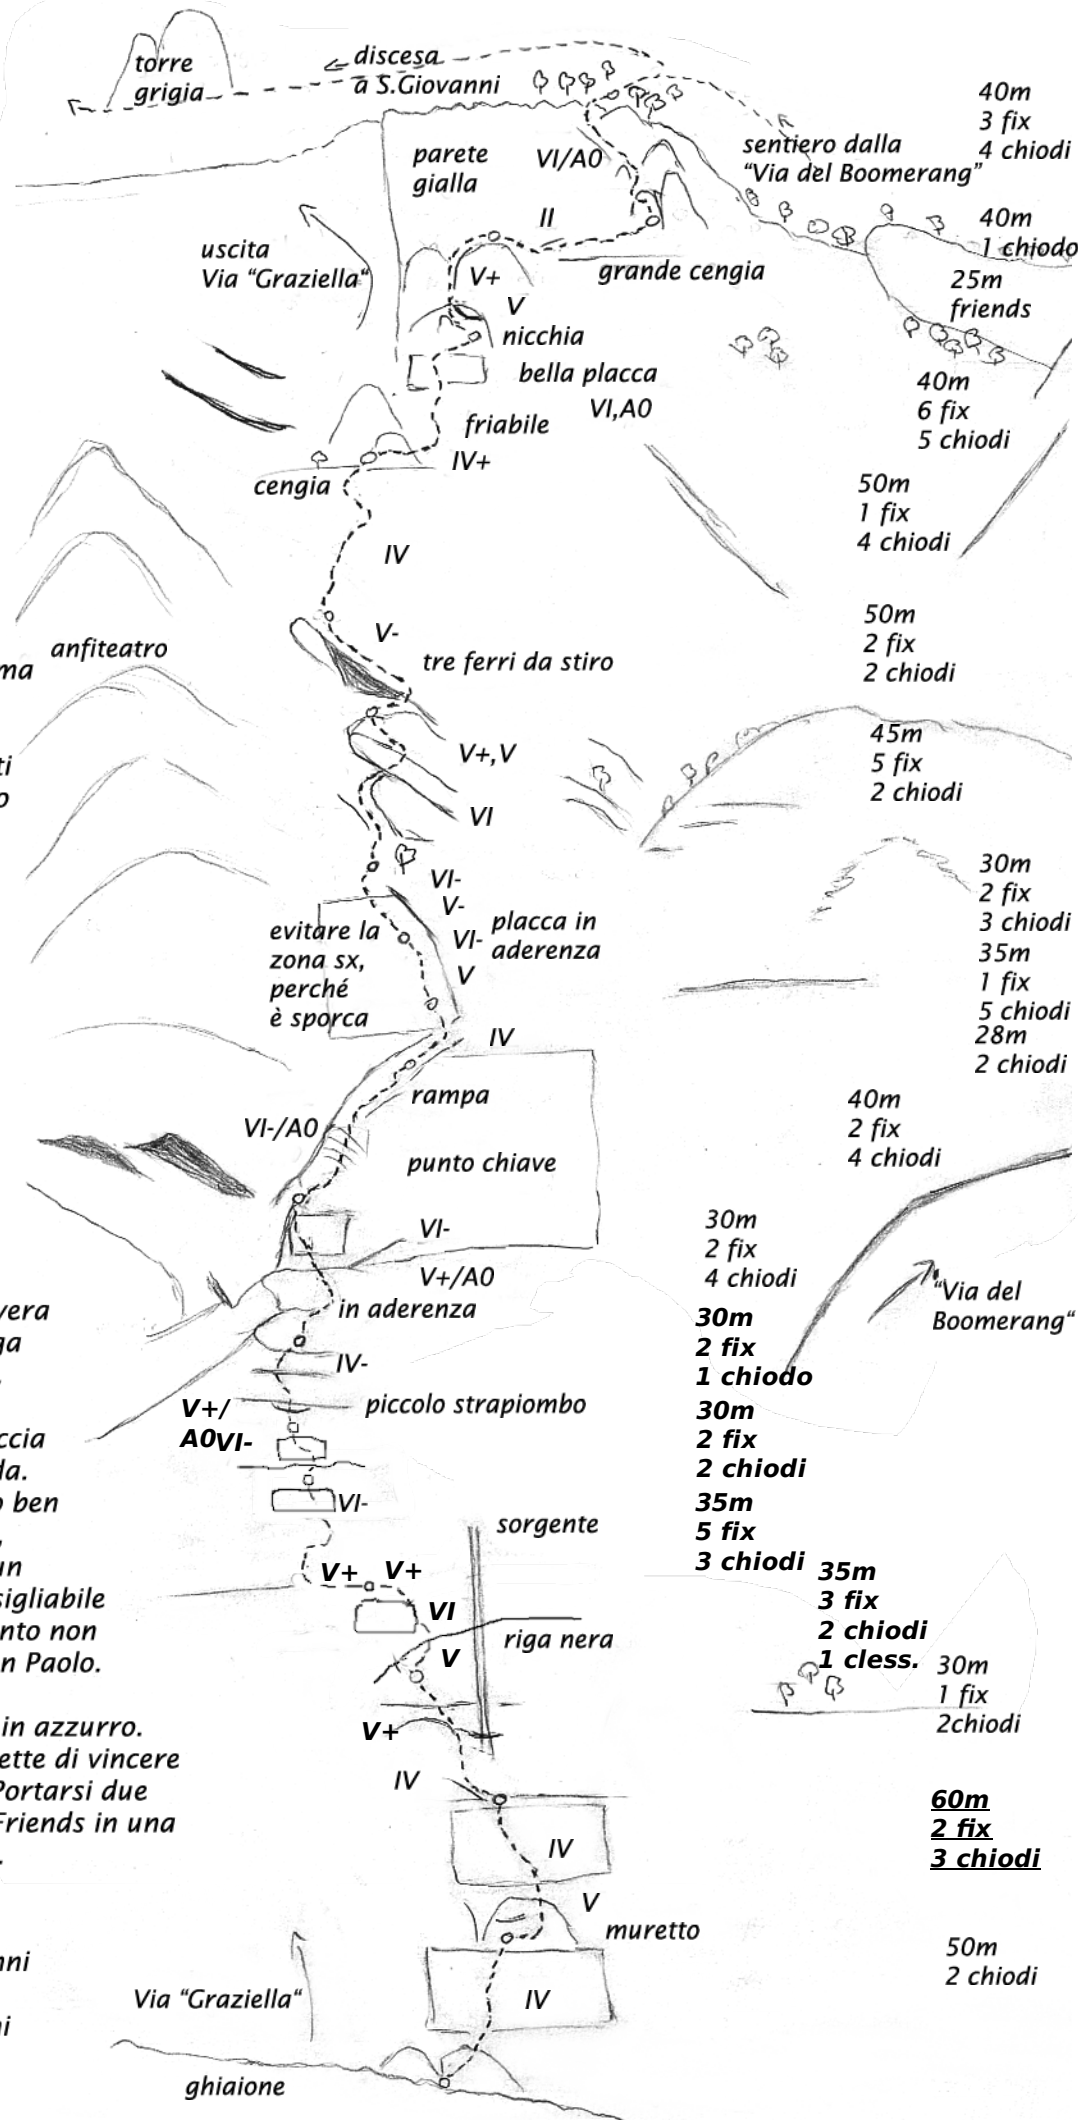 torre
grigia
discesa
a S.Giovanni
40m
3 fix
4 chiodi
parete
gialla
VI/A0
sentiero dalla
"Via del Boomerang"
II
40m
1 chiodo
uscita
Via "Graziella"
V+
grande cengia
25m
friends
V
nicchia
bella placca
VI,A0
40m
6 fix
5 chiodi
friabile
IV+
cengia
50m
1 fix
4 chiodi
IV
50m
2 fix
2 chiodi
V-
anfiteatro
ma
tre ferri da stiro
45m
5 fix
2 chiodi
V+,V
ti
o
VI
30m
2 fix
3 chiodi
VI-
V-
placca in
aderenza
evitare la
zona sx,
perché
è sporca
VI-
V
35m
1 fix
5 chiodi
IV
28m
2 chiodi
rampa
40m
2 fix
4 chiodi
VI-/A0
punto chiave
VI-
30m
2 fix
4 chiodi
V+/A0
in aderenza
"Via del
Boomerang"
vera
ga
30m
2 fix
1 chiodo
IV-
V+/
A0
VI-
piccolo strapiombo
30m
2 fix
2 chiodi
ccia
da.
o ben
VI-
35m
5 fix
3 chiodi
sorgente
un
sigliabile
nto non
n Paolo.
V+
V+
VI
35m
3 fix
2 chiodi
1 cless.
riga nera
V
30m
1 fix
2chiodi
in azzurro.
ette di vincere
Portarsi due
Friends in una
.
V+
IV
60m
2 fix
3 chiodi
IV
V
muretto
50m
2 chiodi
nni
ni
Via "Graziella"
IV
ghiaione